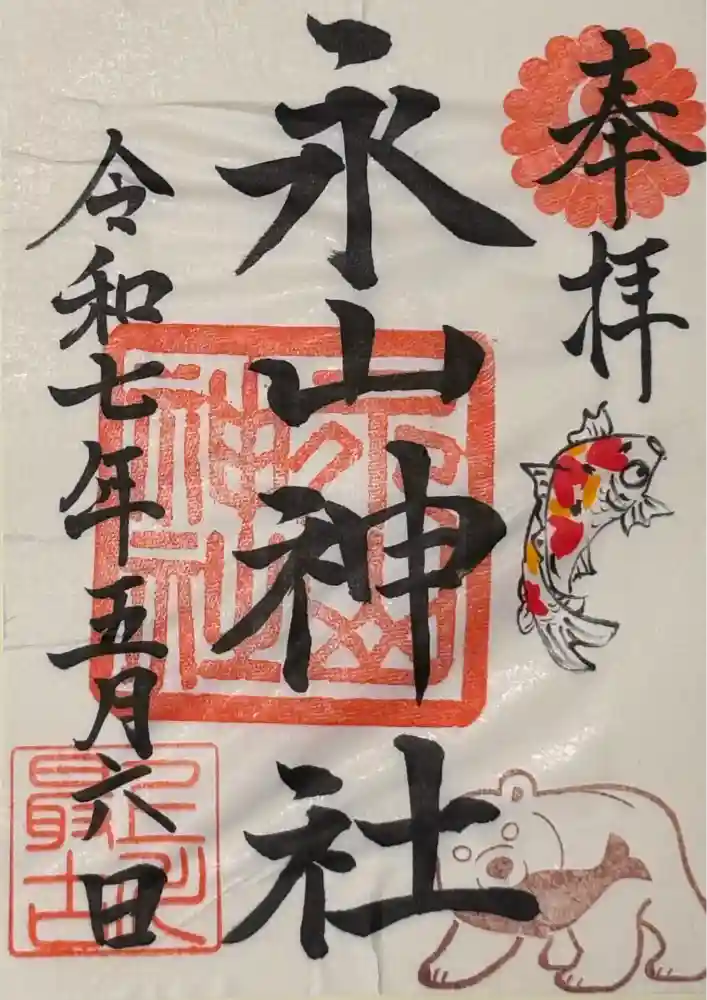 奉拝
永山神社
令和七年五月六日